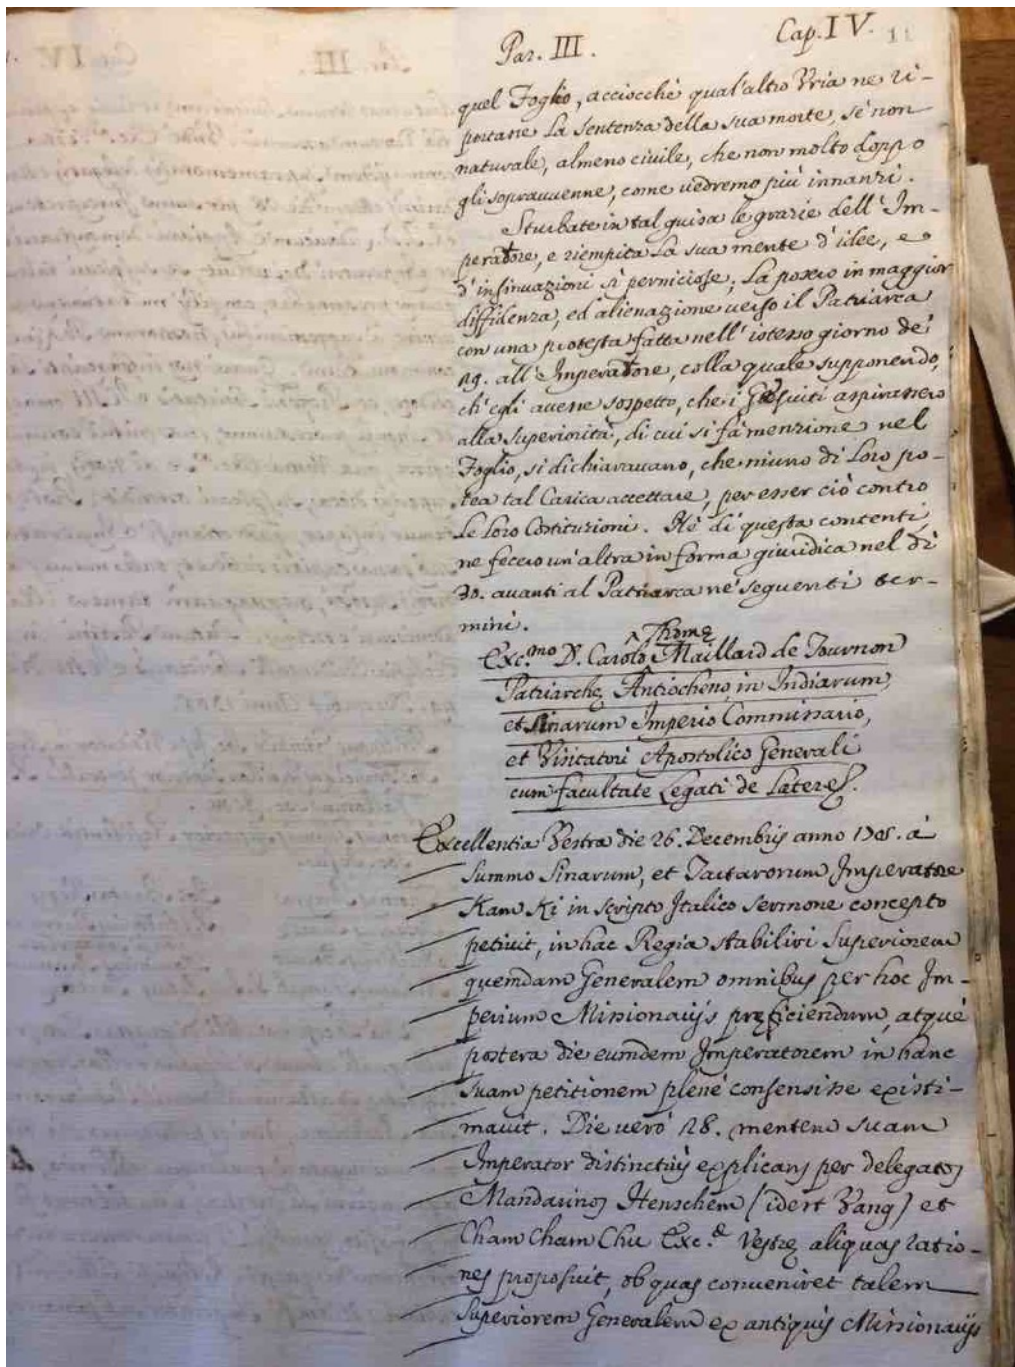 Par. III.
Cap. IV. 11
quel Foglio, acciocchè qual'altro Vria ne ri-
portasse la sentenza della sua morte, sè non
naturale, almeno civile, che non molto doppo
gli sopravvenne, come vedremo più innanzi.
Sturbate in tal guisa le grazie dell'Im-
peratore, e riempita la sua mente d'idee, e
d'insinuazioni sì perniciose, la posero in maggior
diffidenza, ed alienazione verso il Patriarca
con una protesta fatta nell'istesso giorno dè
29. all'Imperatore, colla quale supponendo,
ch'egli avesse sospetto, che i Gesuiti aspirassero
alla superiorità, di cui si fà menzione nel
Foglio, si dichiaravano, che niuno di loro po-
tea tal Carica accettare, per esser ciò contro
le loro Costituzioni. Nè di questa contenti,
ne fecero un'altra in forma giuridica nel dì
30. avanti al Patriarca nè seguenti ter-
mini.
Exc.mo D. Carolo Thomę Maillard de Tournon
Patriarchę Antiocheno, in Indiarum,
et Sinarum Imperio Commissario,
et Visitatori Apostolico Generali
cum facultate Legati de Latere.
Excellentia Vestra die 26. Decembris anno 1705. à
Summo Sinarum, et Tartarorum Imperatore
Kam Ki in scripto Italico sermone concepto
petivit, in hac Regia stabiliri Superiorem
quemdam Generalem omnibus per hoc Im-
perium Missionarijs pręficiendum, atquè
postera die eumdem Imperatorem in hanc
suam petitionem plenè consensisse existi-
mavit. Die verò 28. mentem suam
Imperator distinctiùs explicans per delegatos
Mandarinos Henschem (idest Vang) et
Cham Cham Chu Exc.ę Vestrę aliquas ratio-
nes proposuit, ob quas conveniret talem
Superiorem Generalem ex antiquis Missionarijs